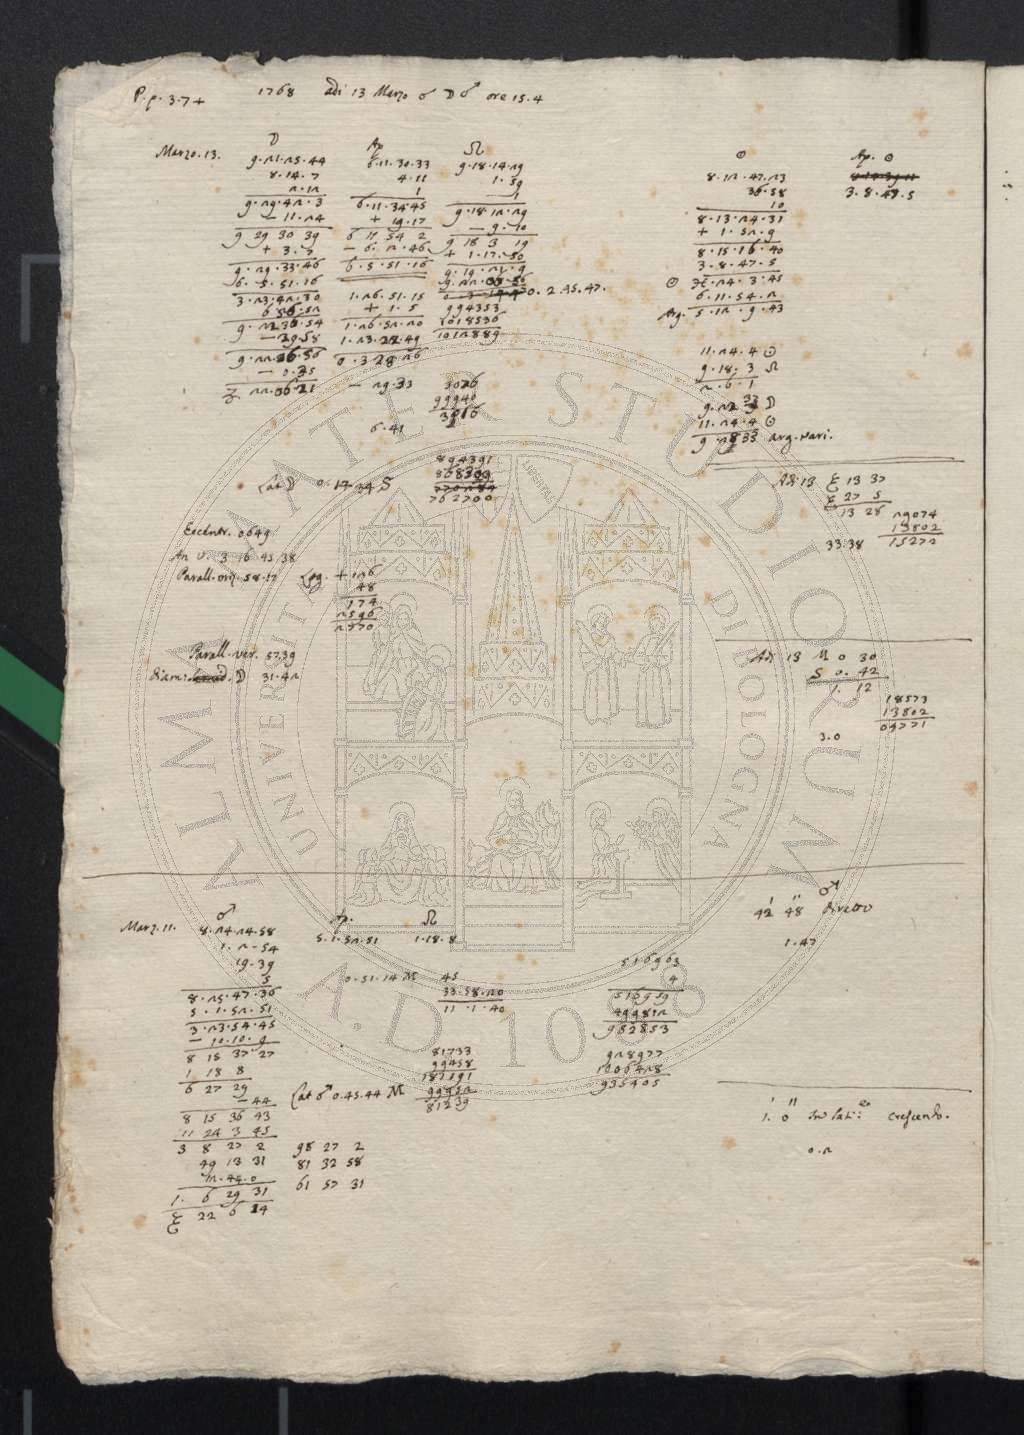 P.p. 3.7 + 1768 adi 13 Marzo ☌ ☽ ♂ ore 15.4
☽ Ap. ☊ ☉ Ap. ☉
Marzo. 13. 9.21.25.44 6.11.30.33 9.18.14.29 8.12.47.23
8.14.7 4.11 1.59 36.58 3.8.47.5
2.12 1 1 10
9.29.42.3 6.11.34.45 9.18.12.29 8.13.24.31
- 11.24 + 19.17 - 9.10 + 1.52.9
9 29 30 39 6 11 54 2 9 18 3 19 8.15.16.40
+ 3.7 - 6.2.46 + 1.17.50 3.8.47.5
9.29.33.46 6.5.51.16 9.19.21.9 ☉ 24.3.45
6.5.51.16 6.11.54.2
3.23.42.30 1.26.51.15 0.2.45.47. Arg. 5.12.9.43
+ 1.5 994353
1.26.52.20 1018536
- 29.58 1.23.22.49 1012889
0.3.28.26 11.24.4 ☉
- 0.35 9.18.3 ☊
- 29.33 3026 2.6.1
99940
6.41 11.24.4 ☉
arg. vari.
894391
Lat ☽ S Adi 13 13 37
762700 27 5
13 28 29074
Eccentr. 0649 13802
An v. 3 16 45 38 33.38 15272
Parall. oriz. 58.17 Log. + 126
48
174
2596
2770
Parall. ver. 57.39 Adi 13 M 0 30
Diam. ☽ 31.42 S 0. 42
1. 12
18573
13802
04771
3.0
♂
42' 48'' diretto
♂ Ap. ☊
Marz. 11. 8.24.24.58 5.1.52.51 1.18.8
1.2.54 1.47
19.39 516963
5 0.51.14 M 45 4
8.25.47.36 33.58.20 516959
5.1.52.51 11.1.40 499812
3.23.54.45 982853
- 10.10.9
8 15 37 27 81733 928977
1 18 8 99458 1006428
6 27 29 181191 935405
- 44 Lat ♂ 0.45.44 M 99952
8 15 36 43 81239 1.' 0'' In lat.e crescendo.
11 24 3 45
3 8 27 2 98 27 2 0.2
49 13 31 81 32 58
12.44.0 61 57 31
1. 6 29 31
22 6 14
ALMA MATER STUDIORUM
UNIVERSITÀ DI BOLOGNA
A.D. 1088